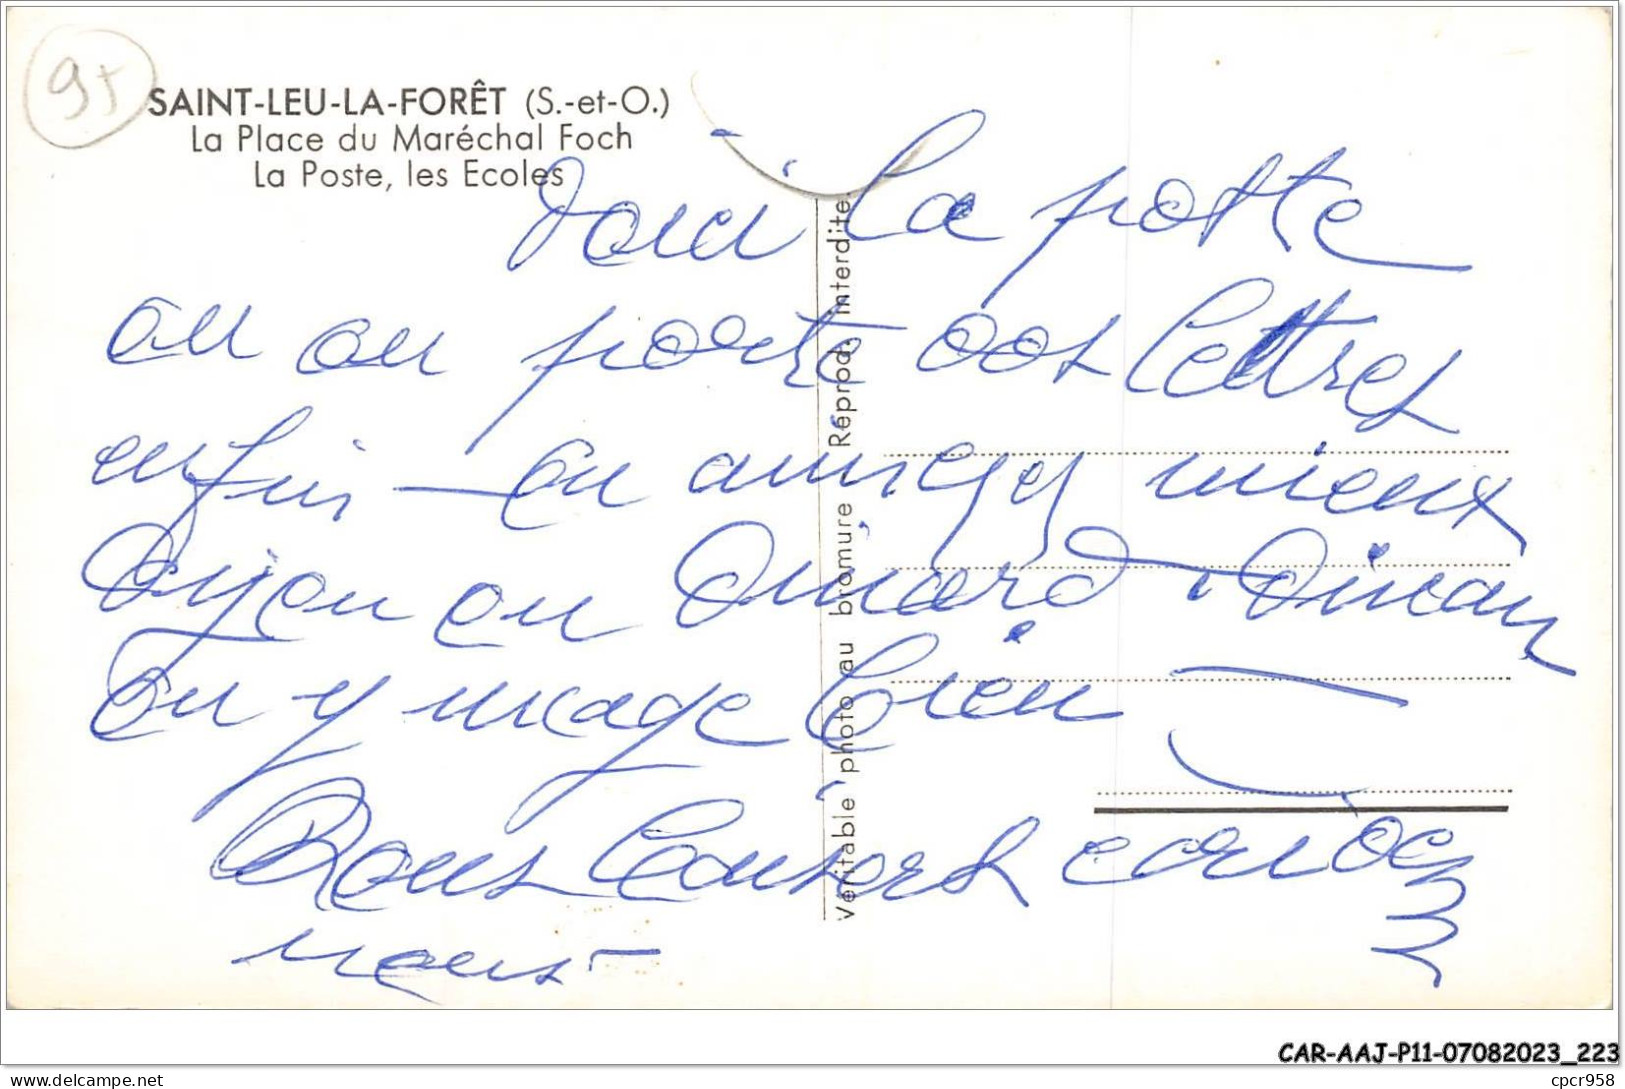 95
SAINT-LEU-LA-FORÊT (S.-et-O.)
La Place du Maréchal Foch
La Poste, les Ecoles
Voici la poste
où on porte vos lettres
enfin — on mieux
Dinard Dinan
on y mage bien
Bons baisers
nous —
Véritable photo au bromure Réprod. interdite.
CAR-AAJ-P11-07082023_223
delcampe.net
cpcr958